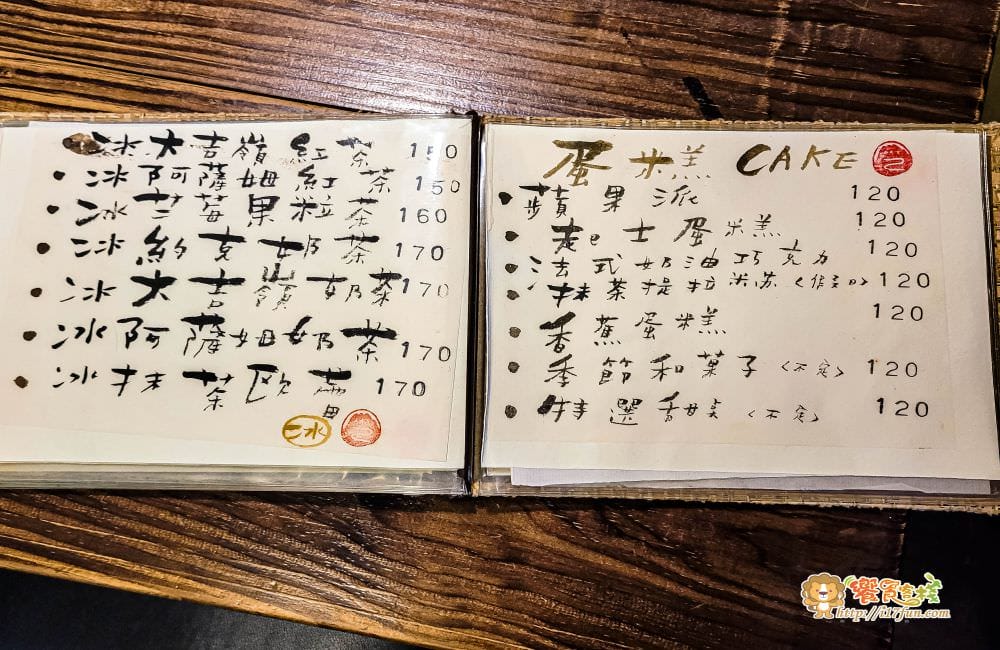 冰大吉嶺紅茶 150
冰阿薩姆紅茶 150
冰芒莓果粒茶 160
冰約克奶茶 170
冰大吉嶺奶茶 170
冰阿薩姆奶茶 170
冰抹茶欧蕾 170
冰
蛋糕 CAKE
蘋果派 120
起士蛋糕 120
法式奶油巧克力 120
抹茶提拉米苏(假日) 120
香蕉蛋糕 120
季節和菓子(不定) 120
特選甜点(不定) 120
饗食食棧
http://i17fun.com